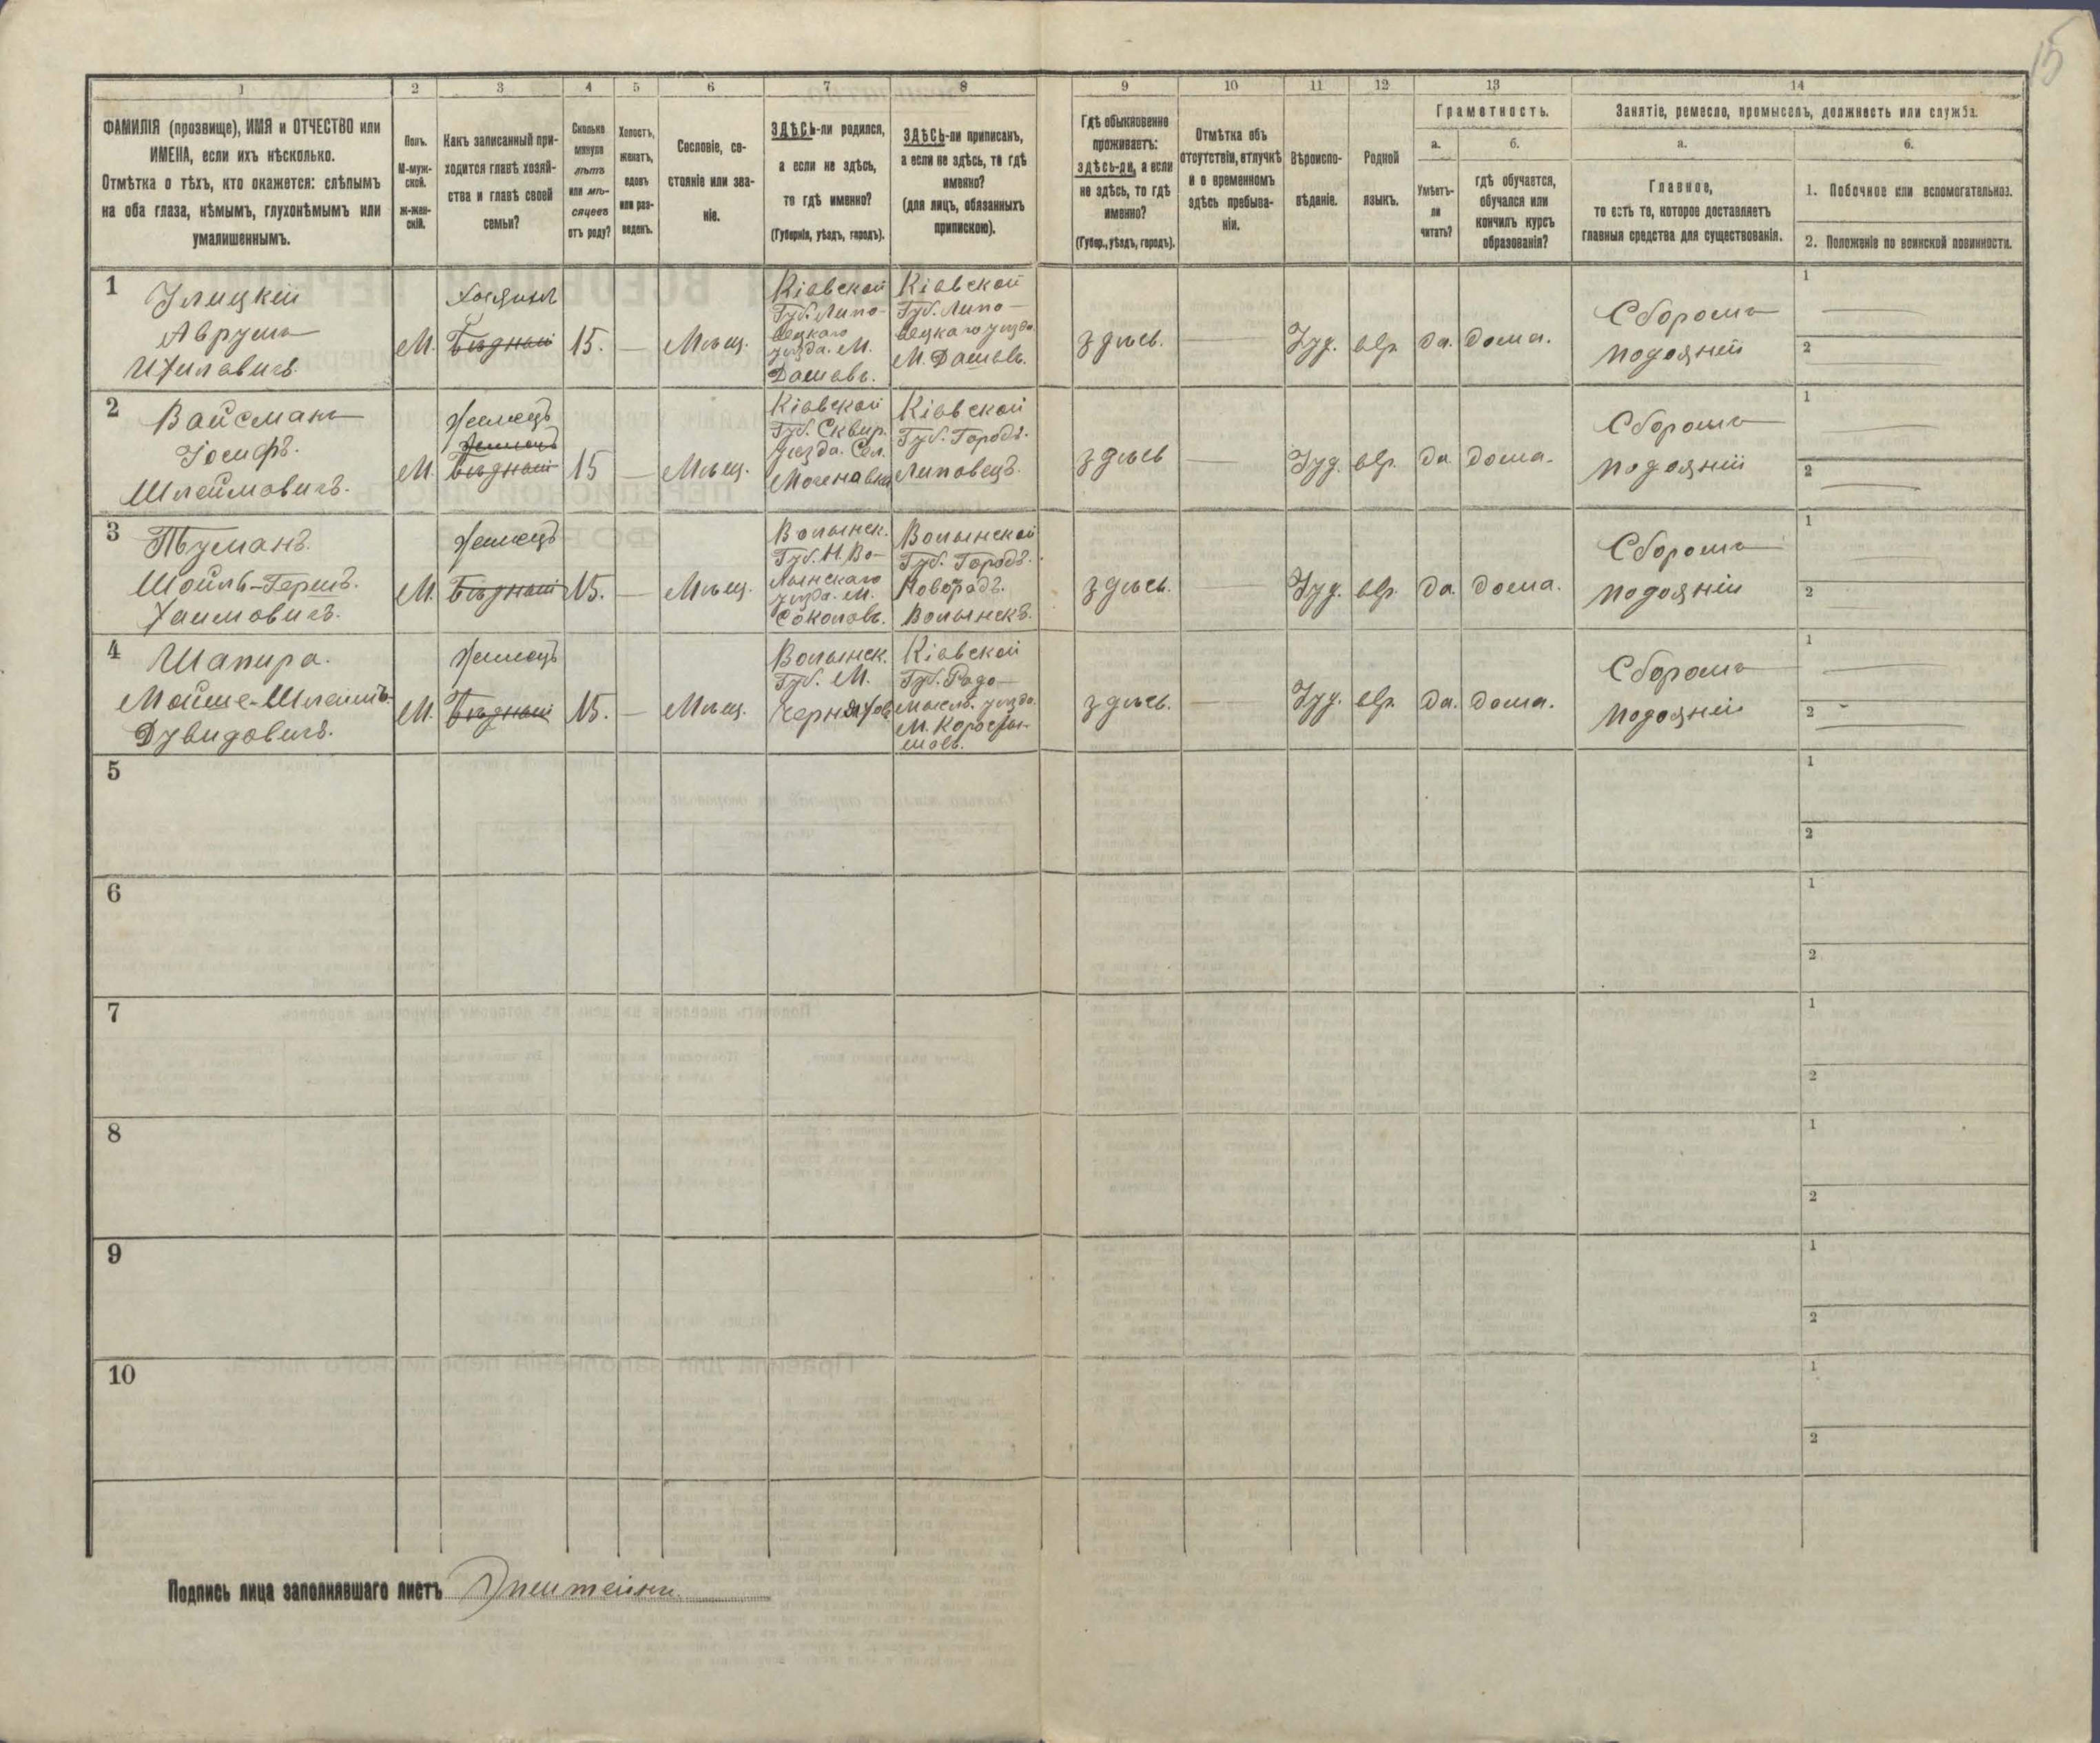 15
1 2 3 4 5 6 7 8 9 10 11 12 13 14
ФАМИЛІЯ (прозвище), ИМЯ и ОТЧЕСТВО или
ИМЕНА, если ихъ нѣсколько.
Отмѣтка о тѣхъ, кто окажется: слѣпымъ
на оба глаза, нѣмымъ, глухонѣмымъ или
умалишеннымъ.
Полъ.
М-муж-
ской.
ж-жен-
скій.
Какъ записанный при-
ходится главѣ хозяй-
ства и главѣ своей
семьи?
Сколько
минуло
лѣтъ
или мѣ-
сяцевъ
отъ роду?
Холостъ,
женатъ,
вдовъ
или раз-
веденъ.
Сословіе, со-
стояніе или зва-
ніе.
ЗДѢСЬ-ли родился,
а если не здѣсь,
то гдѣ именно?
(Губернія, уѣздъ, городъ).
ЗДѢСЬ-ли приписанъ,
а если не здѣсь, то гдѣ
именно?
(для лицъ, обязанныхъ
припискою).
Гдѣ обыкновенно
проживаетъ:
здѣсь-ли, а если
не здѣсь, то гдѣ
именно?
(Губер., уѣздъ, городъ).
Отмѣтка объ
отсутствіи, отлучкѣ
и о временномъ
здѣсь пребыва-
ніи.
Вѣроиспо-
вѣданіе.
Родной
языкъ.
Грамотность.
а.
Умѣетъ-
ли
читать?
б.
гдѣ обучается,
обучался или
кончилъ курсъ
образованія?
Занятіе, ремесло, промыселъ, должность или служба.
а.
Главное,
то есть то, которое доставляетъ
главныя средства для существованія.
б.
1. Побочное или вспомогательное.
2. Положеніе по воинской повинности.
1
Аврумъ
М.
Бѣдный
15.
—
Мѣщ.
Кіевской
Губ. Липо-
вецкаго
уѣзда. М.
Дашевъ.
Кіевской
Губ. Липо-
вецкаго уѣзда.
М. Дашевъ.
здѣсь.
—
Іуд.
евр.
да.
дома.
Сборомъ
подояній
1
2
2
Вайсманъ
Іосифъ.
Шлеймовичъ.
М.
Жилецъ
Жилецъ
Бѣдный
15
—
Мѣщ.
Кіевской
Губ. Сквир.
уѣзда. Сел.
Кіевской
Губ. Городъ.
Липовецъ.
здѣсь
—
Іуд.
евр.
да
дома.
Сборомъ
подояній
1
2
3
Шойлъ-Гершъ.
Хаимовичъ.
М.
Жилецъ
Бѣдный
15.
—
Мѣщ.
Волынск.
Губ. Н. Во-
лынскаго
уѣзда. М.
Соколовъ.
Волынской
Губ. Городъ.
Новоградъ.
Волынскъ.
здѣсь.
—
Іуд.
евр.
да.
дома.
Сборомъ
подояній
1
2
4
Шапира.
Мойше-Шлеимъ-
Дувидовичъ.
М.
Жилецъ
Бѣдный
15.
—
Мѣщ.
Волынск.
Губ. М.
Черняховъ
Кіевской
Губ. Радо-
мысл. уѣзда.
М. Коросты-
шевъ.
здѣсь.
—
Іуд.
евр.
да.
дома.
Сборомъ
подояній
1
2
5
1
2
6
1
2
7
1
2
8
1
2
9
1
2
10
1
2
Подпись лица заполнявшаго листъ